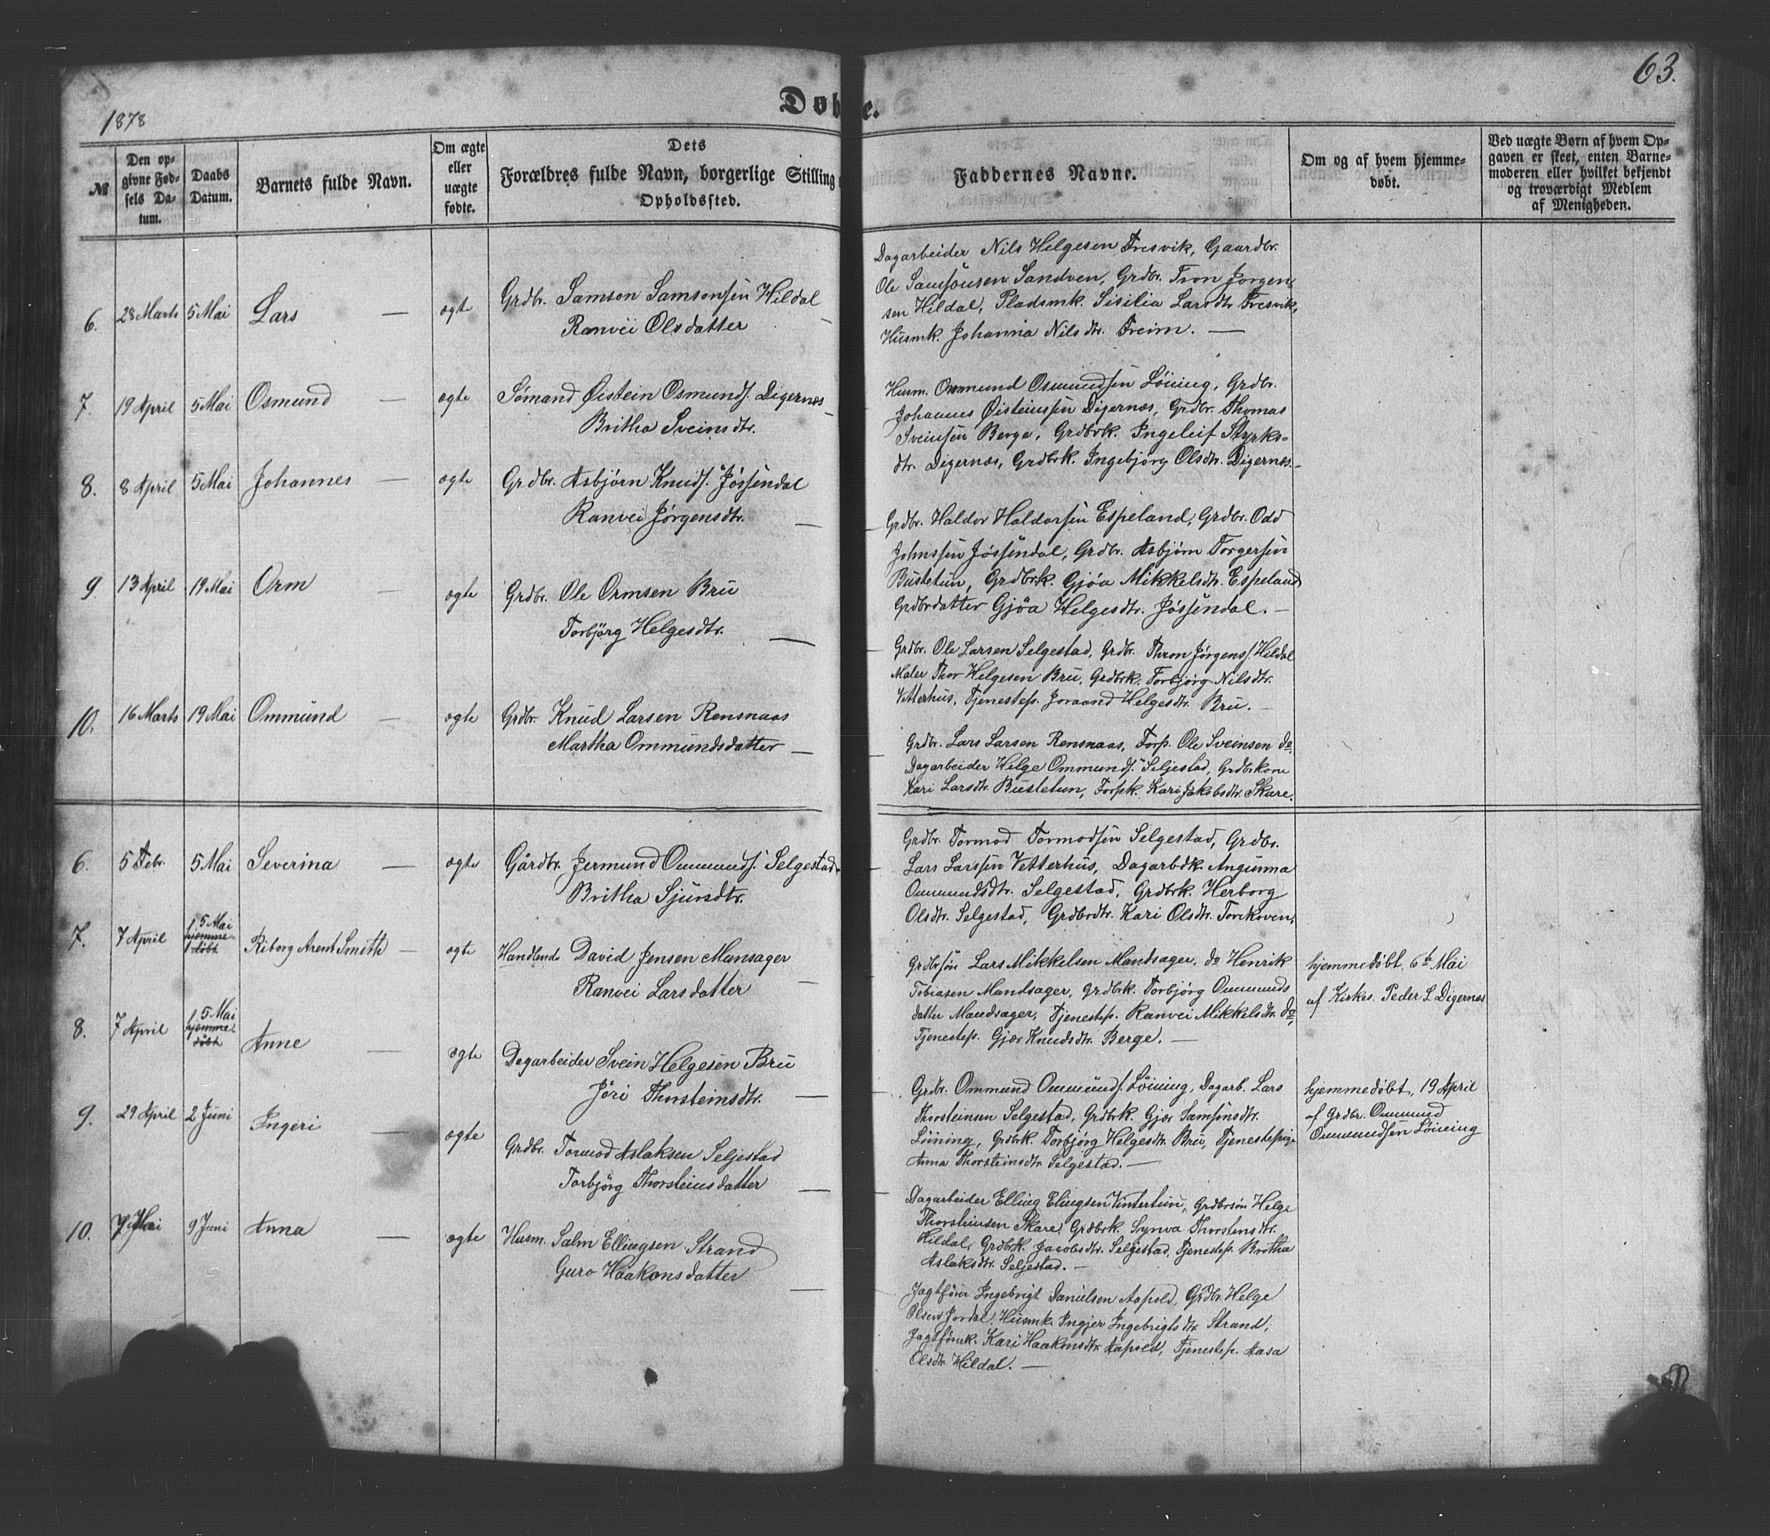 1878
63.
Døbte.
№
Den opgivne Fødsels Datum.
Daabs Datum.
Barnets fulde Navn.
Om ægte eller uægte fødte.
Dets Forældres fulde Navn, borgerlige Stilling
Opholdssted.
Faddernes Navne.
Om og af hvem hjemmedøbt.
Ved uægte Børn af hvem Opgaven er skeet, enten Barnemoderen eller hvilket bekjendt og troværdigt Medlem af Menigheden.
6. 28 Marts 5 Mai Lars — ægte Grdbr. Samson Samsonsen Hildal
Ranvei Olsdatter —
Dagarbeider Nils Helgesen Tresvik, Gaardbr.
Ole Samsonsen Sandven, Grdbr. Tron Jørgen
sen Hildal, Pladsmk. Sisilia Larsdtr. Tresvik,
Husmk. Johanna Nilsdtr. Freim. —
7. 19 April 5 Mai Osmund — ægte Sømand Øistein Osmunds. Digernes
Britha Sveinsdtr. —
Husm. Ommund Osmundsen Løining, Grdbr.
Johannes Øisteinsen Digernes, Grdbr. Thomas
Sveinsen Berge, Grdbrk. Ingeleif Styrks-
dtr. Digernes, Grdbrk. Ingebjørg Olsdtr. Digernes.
8. 8 April 5 Mai Johannes — ægte Grdbr. Asbjørn Knuds. Jøssendal
Ranvei Jørgensdtr. —
Grdbr. Haldor Haldorsen Espeland, Grdbr. Odd
Johnssen Jøssendal, Grdbr. Asbjørn Torgersen
Bustetun, Grdbrk. Gjøa Mikkelsdtr. Espeland
Grdbrdatter Gjøa Helgesdtr. Jøssendal. —
9. 13 April 19 Mai Orm — ægte Grdbr. Ole Ormsen Bru
Torbjørg Helgesdtr. —
Grdbr. Ole Larsen Selgestad, Grdbr. Thron Jørgens. Hildal
Maler Thor Helgesen Bru, Grdbrk. Torbjørg Nilsdtr.
Vetterhus, Tjenestep. Joraand Helgesdtr. Bru. —
10. 16 Marts 19 Mai Ommund — ægte Grdbr. Knud Larsen Rensnaas
Martha Ommundsdatter —
Grdbr. Lars Larsen Rensnaas, Forp. Ole Sveinsen do.
Dagarbeider Helge Ommunds. Seljestad, Grdbrkone
Kari Larsdtr. Bustetun, Forpk. Kari Jakobsdtr. Skare.
6. 5 Febr. 5 Mai Severina — ægte Gårdbr. Jermund Ommunds. Selgestad
Britha Sjursdtr.
Grdbr. Tormod Tormodsen Selgestad, Grdbr.
Lars Larssen Vetterhus, Dagarbdk. Angunna
Ommundsdtr. Selgestad, Grdbrk. Herborg
Olsdtr. Selgestad, Grdbrdtr. Kari Olsdtr.
7. 7 April 5 Mai hjemmedøbt Riborg Arent Smith — ægte Handlende David Jensen Mansager
Ranvei Larsdatter —
Grdbrsøn Lars Mikkelsen Mandsager, do Henrik
Tobiasen Mandsager, Grdbrk. Torbjørg Ommunds
datter Mandsager, Tjenestep. Ranvei Mikkelsdtr. do,
Tjenestep. Gjær Knudsdtr. Berge. —
hjemmedøbt, 6te Mai
af Kirkes. Peder L Digernes
8. 7 April 5 Mai hjemmedøbt Anne — ægte Dagarbeider Svein Helgesen Bru
Jóri Thorsteinsdtr. —
Grdbr. Ommund Ommunds. Løining, Dagarb. Lars
Thorsteinsen Selgestad, Grdbrk. Gjær Samsonsdtr.
Løining, Grdbrk. Torbjørg Helgesdtr. Bru, Tjenestepige
Anna Thorsteinsdtr. Selgestad. —
hjemmedøbt, 19 April
af Grdbr. Ommund
Ommundsen Løining
9. 29 April 2 Juni Ingeri — ægte Grdbr. Tormod Aslaksen Seljestad
Torbjørg Thorsteinsdatter —
Dagarbeider Elling Elingsen Vintertun, Grdbrsøn Helge
Thorsteinsen Skare, Grdbrk. Synva Thorstensdtr.
Hildal, Grdbrk. Jacobsdtr. Seljestad, Tjenestep. Brotha
Aslaksdtr. Seljestad. —
10. 7 Mai 9 Juni Anna — ægte Husm. Salm Ellingsen Strand
Guro Haakonsdatter —
Jagtfører Ingebrigt Danielsen Aapold, Grdbr. Helge
Olsen Jordal, Husmk. Ingjer Ingebrigtsdtr. Strand,
Jagtførerk. Kari Haakonsdtr. Aapold, Tjenestep. Aasa
Olsdtr. Hildal. —